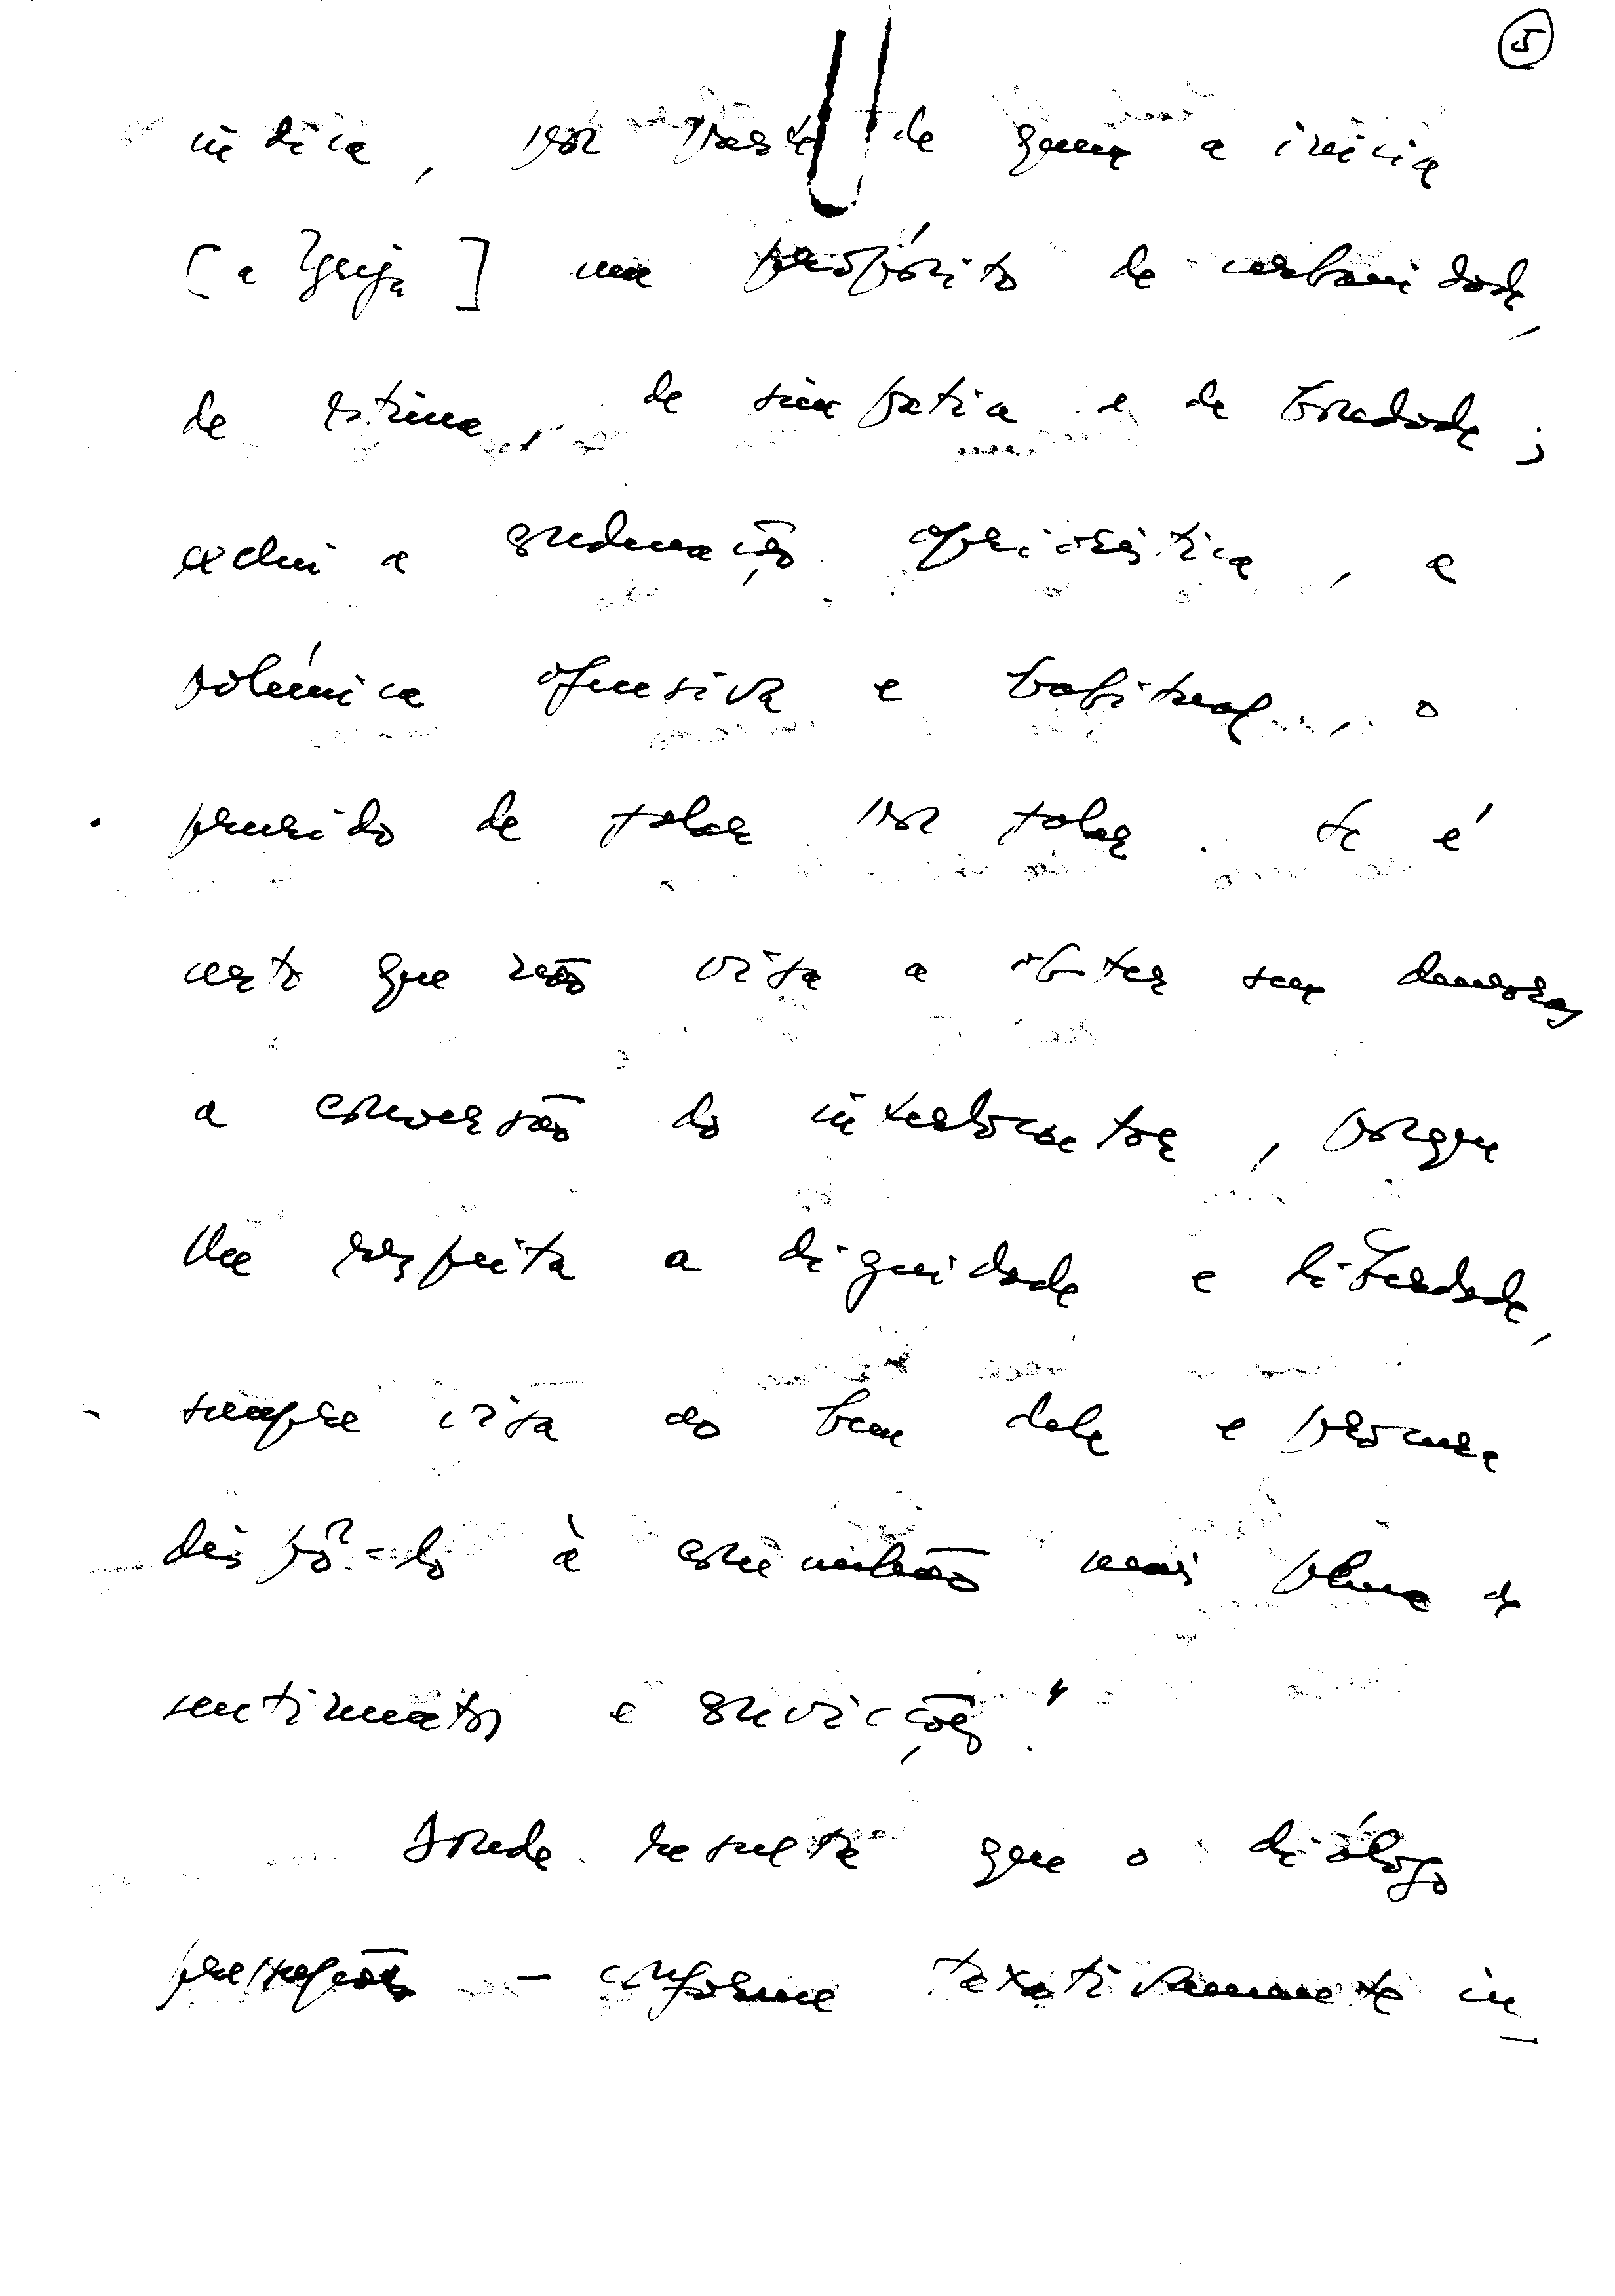 5
indica, por parte de quem a inicia
[a Igreja] um propósito de urbanidade,
de estima, de simpatia e de bondade;
exclui a condenação apriorística, a
polémica ofensiva e habitual, o
prurido de falar por falar. Se é
certo que não visa a obter sem demora,
a conversão do interlocutor, porque
lhe respeita a dignidade e liberdade,
sempre visa ao bem dele e procura
dispô-lo à comunhão mais plena de
sentimentos e convicções."
Donde resulta que o diálogo
pressupõe - conforme taxativamente in